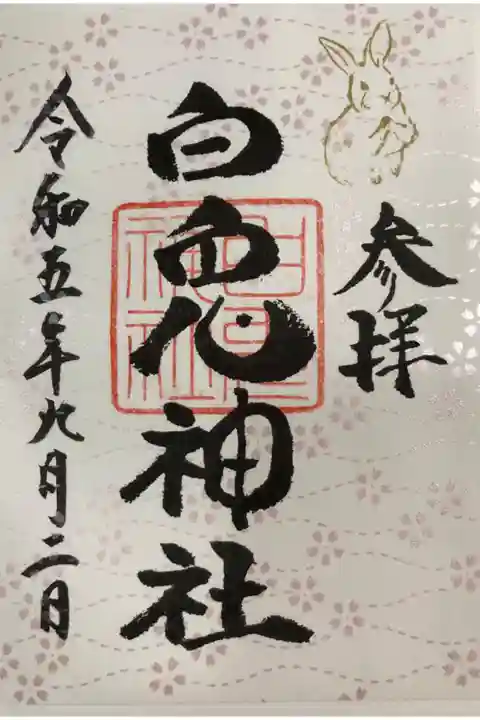 参拝
白兎神社
令和五年九月二日